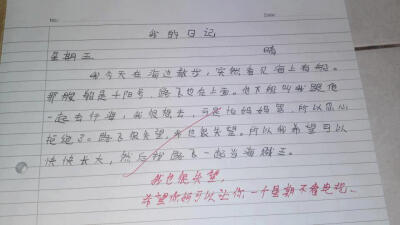 No:
Date:
我的日记
星期三 晴
我今天在海边散步，突然看见海上有船。
那艘船是十阳号，路飞也在上面。他大喊叫我跟他
一起去行海，我很想去，可是怕妈妈骂，所以忍心
拒绝了。路飞很失望，我也很失望。所以我希望可以
快快长大，然后和路飞一起当海贼王。
我也很失望，
希望你妈可以让你一个星期不看电视。